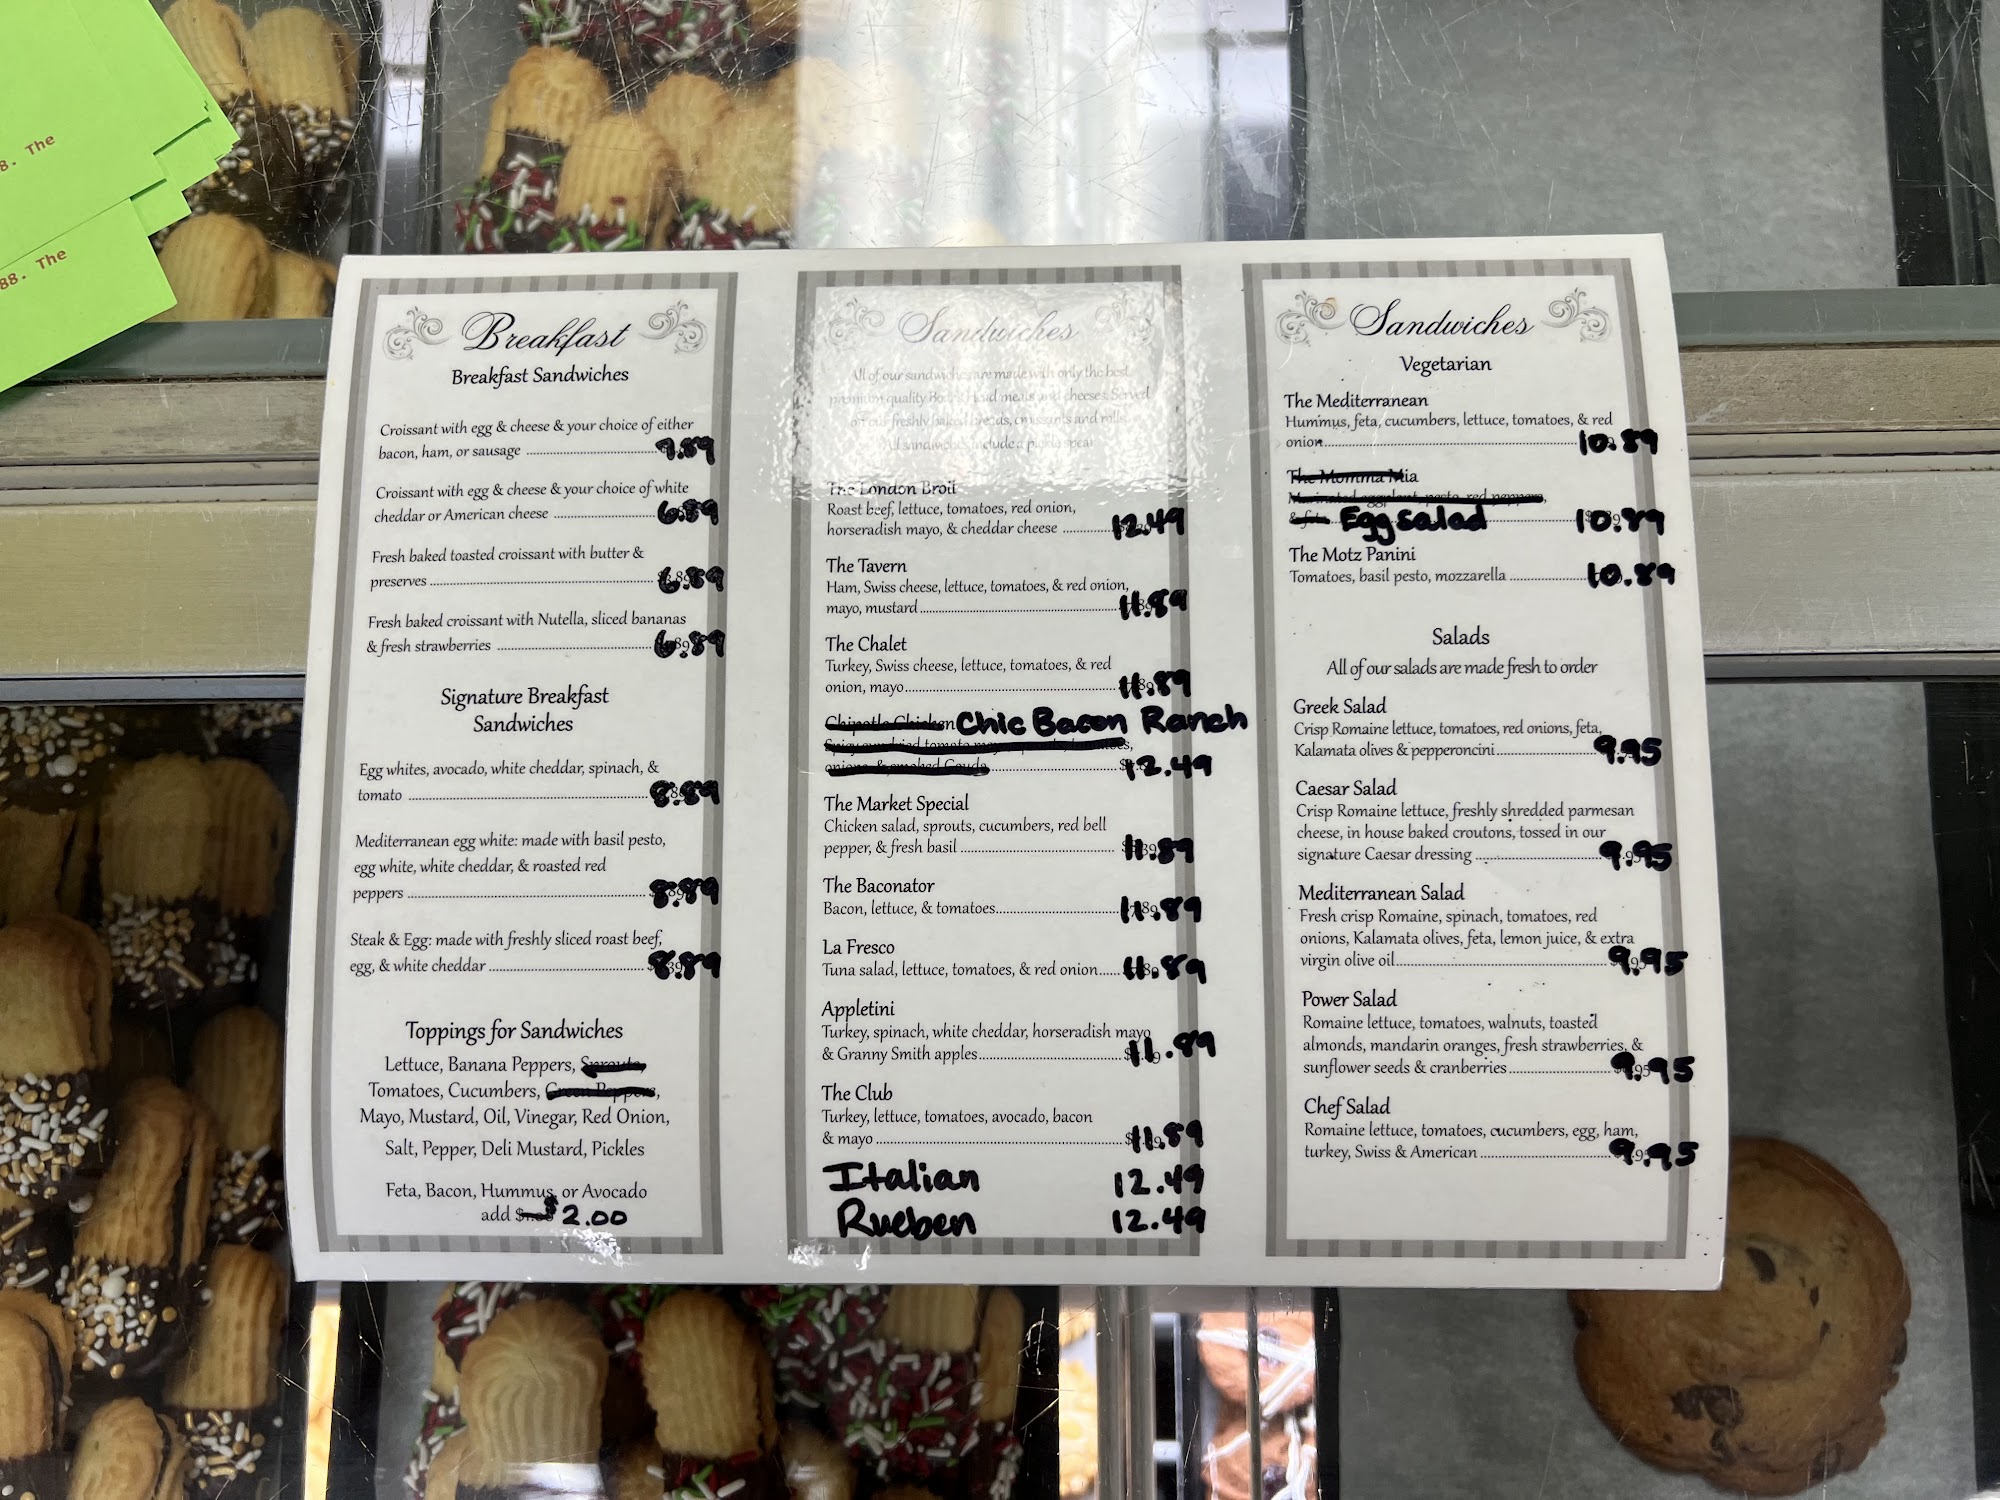 8. The
88. The
Breakfast
Breakfast Sandwiches
Croissant with egg & cheese & your choice of either
bacon, ham, or sausage 7.89
Croissant with egg & cheese & your choice of white
cheddar or American cheese 6.89
Fresh baked toasted croissant with butter &
preserves 6.89
Fresh baked croissant with Nutella, sliced bananas
& fresh strawberries 6.89
Signature Breakfast
Sandwiches
Egg whites, avocado, white cheddar, spinach, &
tomato 8.89
Mediterranean egg white: made with basil pesto,
egg white, white cheddar, & roasted red
peppers 8.89
Steak & Egg: made with freshly sliced roast beef,
egg, & white cheddar 8.89
Toppings for Sandwiches
Lettuce, Banana Peppers, Sprouts,
Tomatoes, Cucumbers, Green Peppers,
Mayo, Mustard, Oil, Vinegar, Red Onion,
Salt, Pepper, Deli Mustard, Pickles
Feta, Bacon, Hummus, or Avocado
add $2.00
Sandwiches
All of our sandwiches are made with only the best
premium quality Boar's Head meats and cheeses. Served
on our freshly baked breads, croissants and rolls.
All sandwiches include a pickle spear
The London Broil
Roast beef, lettuce, tomatoes, red onion,
horseradish mayo, & cheddar cheese 12.49
The Tavern
Ham, Swiss cheese, lettuce, tomatoes, & red onion,
mayo, mustard 11.89
The Chalet
Turkey, Swiss cheese, lettuce, tomatoes, & red
onion, mayo 11.89
Chipotle Chicken Chic Bacon Ranch
Spicy sun dried tomato
onions, & smoked Gouda 12.49
The Market Special
Chicken salad, sprouts, cucumbers, red bell
pepper, & fresh basil 11.89
The Baconator
Bacon, lettuce, & tomatoes 11.89
La Fresco
Tuna salad, lettuce, tomatoes, & red onion 11.89
Appletini
Turkey, spinach, white cheddar, horseradish mayo
& Granny Smith apples 11.89
The Club
Turkey, lettuce, tomatoes, avocado, bacon
& mayo 11.89
Italian 12.49
Rueben 12.49
Sandwiches
Vegetarian
The Mediterranean
Hummus, feta, cucumbers, lettuce, tomatoes, & red
onion 10.89
The Momma Mia
Marinated eggplant, pesto, red peppers,
& feta Egg Salad 10.89
The Motz Panini
Tomatoes, basil pesto, mozzarella 10.89
Salads
All of our salads are made fresh to order
Greek Salad
Crisp Romaine lettuce, tomatoes, red onions, feta,
Kalamata olives & pepperoncini 9.95
Caesar Salad
Crisp Romaine lettuce, freshly shredded parmesan
cheese, in house baked croutons, tossed in our
signature Caesar dressing 9.95
Mediterranean Salad
Fresh crisp Romaine, spinach, tomatoes, red
onions, Kalamata olives, feta, lemon juice, & extra
virgin olive oil 9.95
Power Salad
Romaine lettuce, tomatoes, walnuts, toasted
almonds, mandarin oranges, fresh strawberries, &
sunflower seeds & cranberries 9.95
Chef Salad
Romaine lettuce, tomatoes, cucumbers, egg, ham,
turkey, Swiss & American 9.95